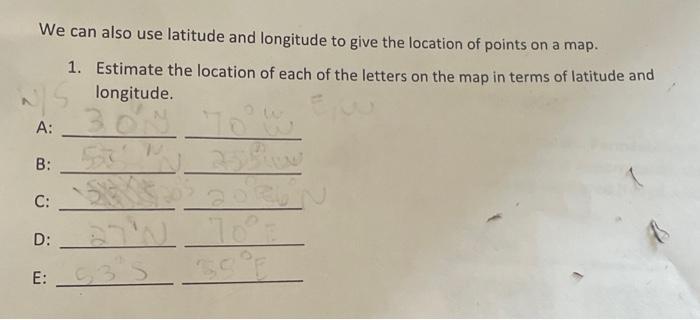 We can also use latitude and longitude to give the location of points on a map.
1. Estimate the location of each of the letters on the map in terms of latitude and
longitude.
N/S E/W
A: 30°N 70°W
B:
C:
D: 27°N 70°E
E: 53°S 35°E